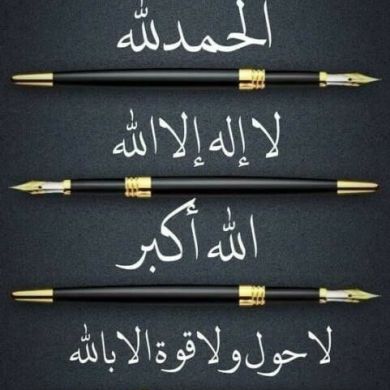 الحمدلله
لا إله إلا الله
الله أكبر
لا حول ولا قوة الا بالله